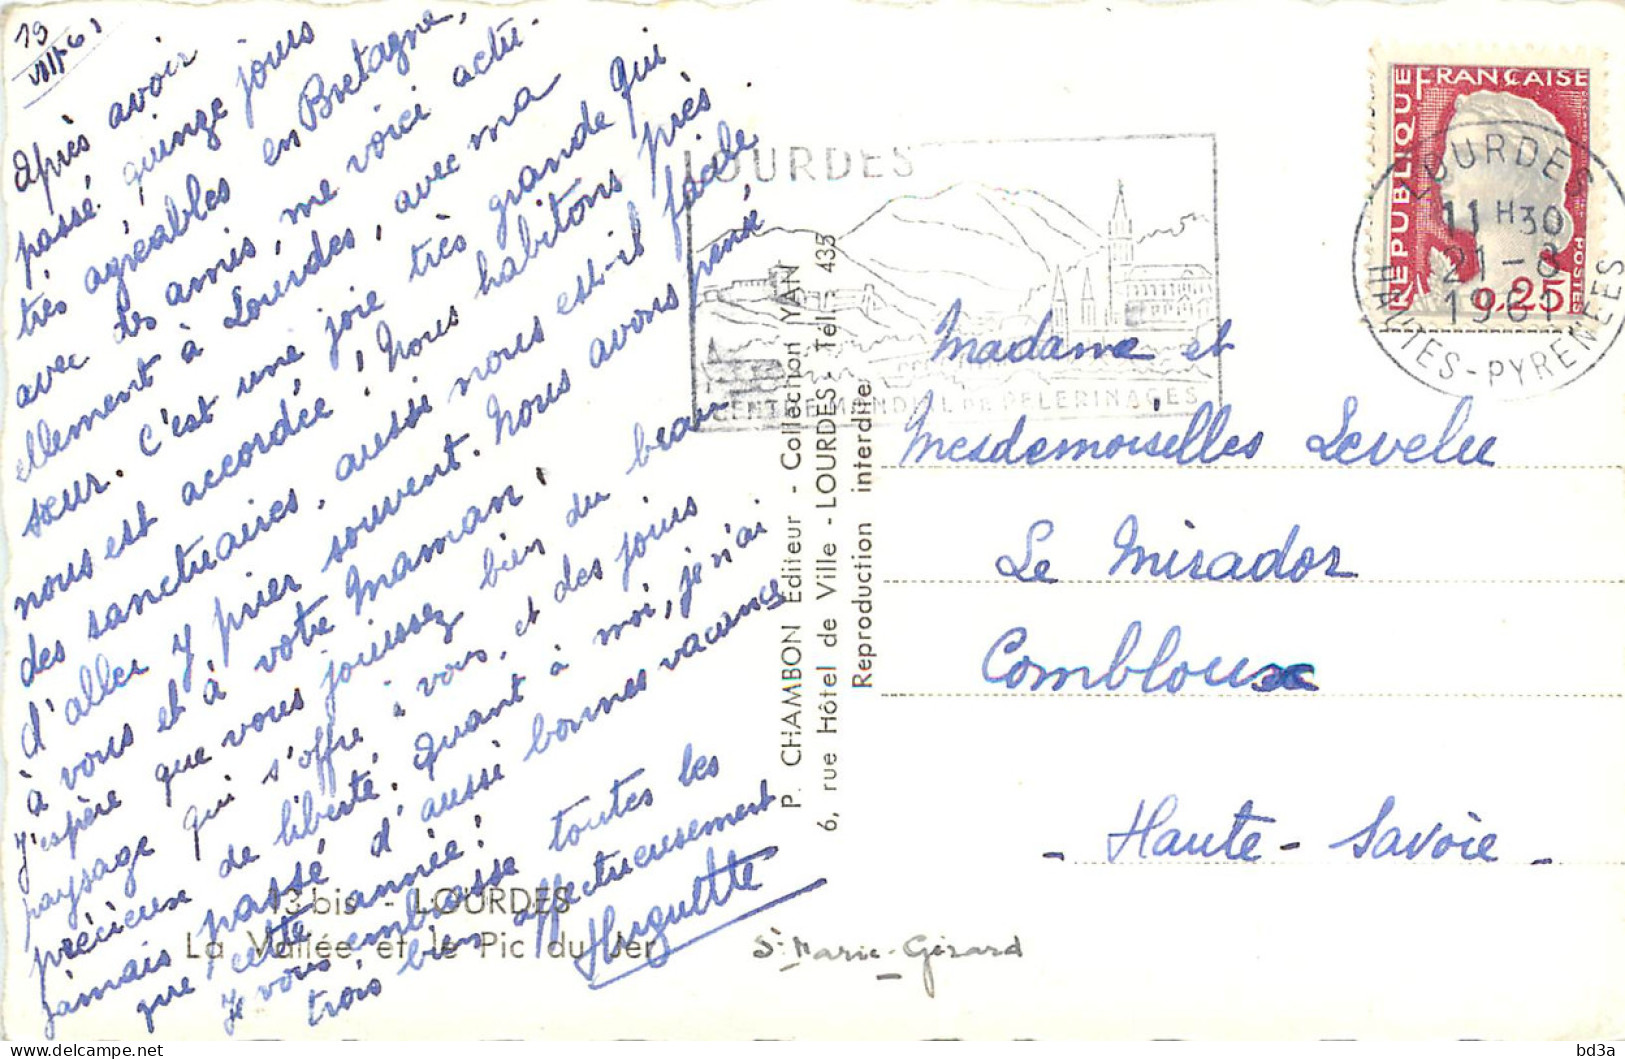 19
VIII-61
Après avoir
passé quinze jours
très agréables en Bretagne,
avec des amis, me voici actu-
ellement à Lourdes, avec ma
sœur. C'est une joie très grande qui
nous est accordée ! Nous habitons près
des sanctuaires, aussi nous est-il facile
d'aller y prier souvent. Nous avons pensé
à vous et à votre Maman.
J'espère que vous jouissez bien du beau
paysage qui s'offre à vous, et des jours
précieux de liberté. Quant à moi, je n'ai
jamais passé d'aussi bonnes vacances
que cette année !
Je vous embrasse toutes les
trois bien affectueusement
Huguette
13 bis - LOURDES
La Vallée et le Pic du Jer
P. CHAMBON Editeur - Collection YAN
6, rue Hôtel de Ville - LOURDES - Tél. 435
Reproduction interdite
LOURDES
CENTRE MONDIAL DE PELERINAGES
REPUBLIQUE FRANÇAISE
POSTES
0,25
LOURDES
11 H 30
21 - 8
1961
HAUTES-PYRENEES
Madame et
Mesdemoiselles Levelu
Le Mirador
Combloux
- Haute-Savoie -
Sr Marie-Gérard
bd3a